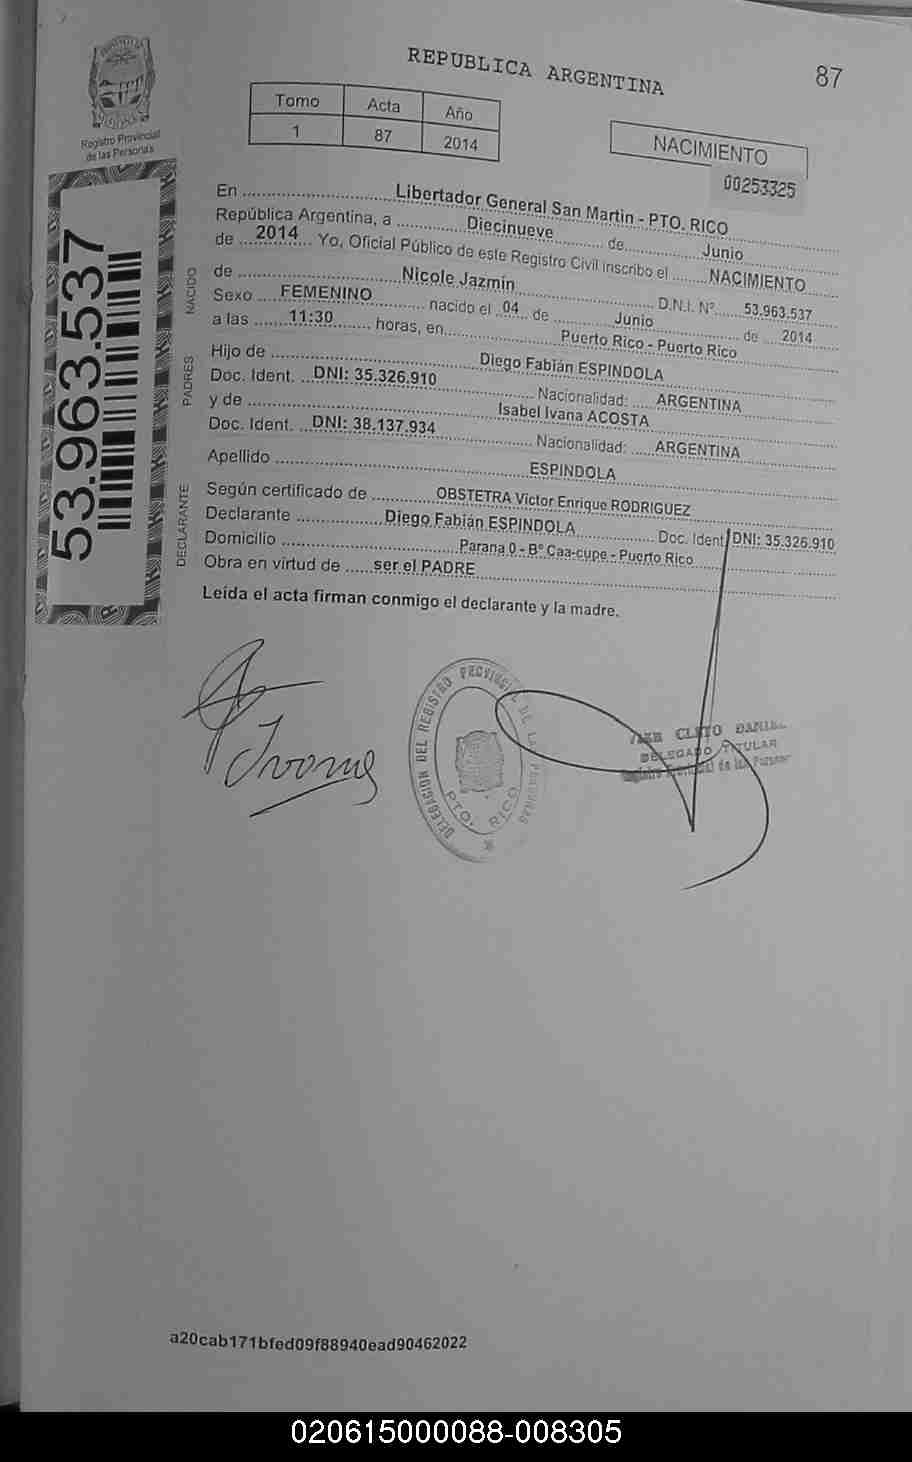 REPUBLICA ARGENTINA
87
Registro Provincial
de las Personas
Tomo Acta Año
1 87 2014
NACIMIENTO
00253325
53.963.537
NACIDO
PADRES
DECLARANTE
En Libertador General San Martin - PTO. RICO
República Argentina, a Diecinueve de Junio
de 2014 Yo, Oficial Público de este Registro Civil inscribo el NACIMIENTO
de Nicole Jazmín D.N.I. Nº 53.963.537
Sexo FEMENINO nacido el 04 de Junio de 2014
a las 11:30 horas, en Puerto Rico - Puerto Rico
Hijo de Diego Fabián ESPINDOLA
Doc. Ident. DNI: 35.326.910 Nacionalidad: ARGENTINA
y de Isabel Ivana ACOSTA
Doc. Ident. DNI: 38.137.934 Nacionalidad: ARGENTINA
Apellido ESPINDOLA
Según certificado de OBSTETRA Victor Enrique RODRIGUEZ
Declarante Diego Fabián ESPINDOLA Doc. Ident DNI: 35.326.910
Domicilio Parana 0 - Bº Caa-cupe - Puerto Rico
Obra en virtud de ser el PADRE
Leída el acta firman conmigo el declarante y la madre.
DELEGACION DEL REGISTRO PROVINCIAL DE LAS PERSONAS
PTO. RICO
CLETO DANIEL
DELEGADO TITULAR
Registro Provincial de las Personas
a20cab171bfed09f88940ead90462022
020615000088-008305